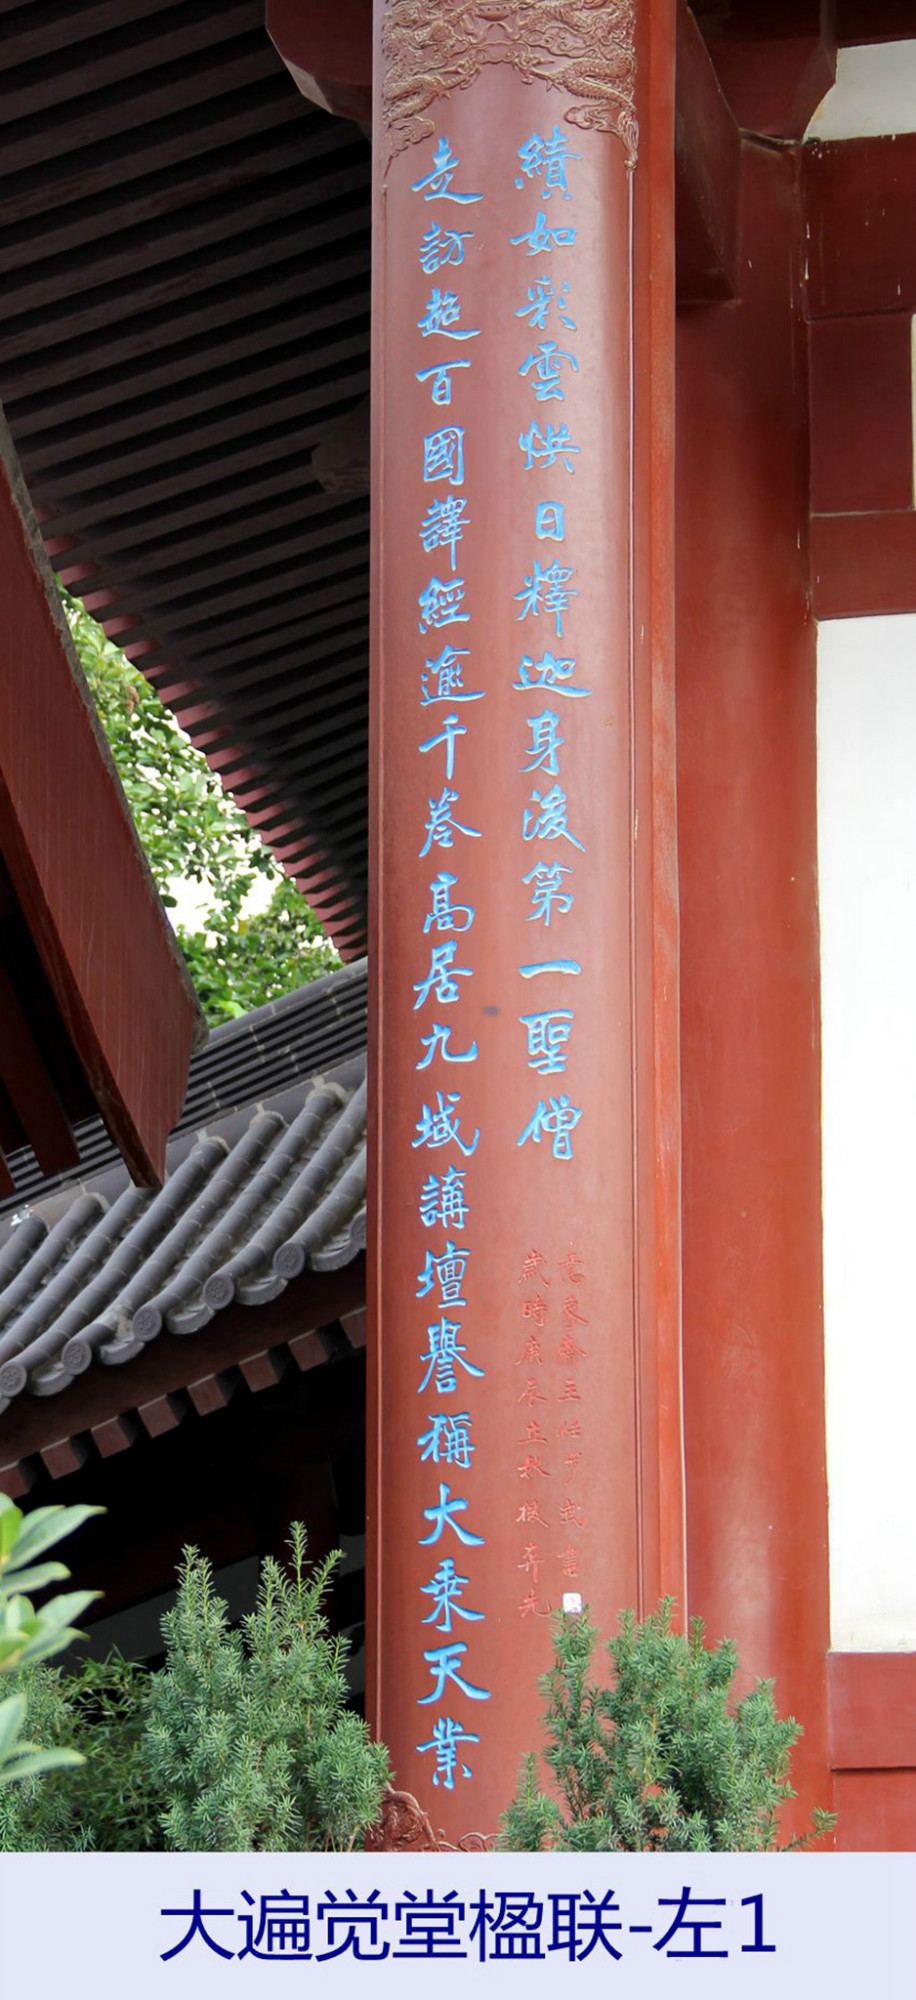 走訪超百國譯經逾千卷高居九域講壇譽稱大乘天業
績如彩雲烘日釋迦身後第一聖僧
歲時庚辰立秋後
大遍觉堂楹联-左1